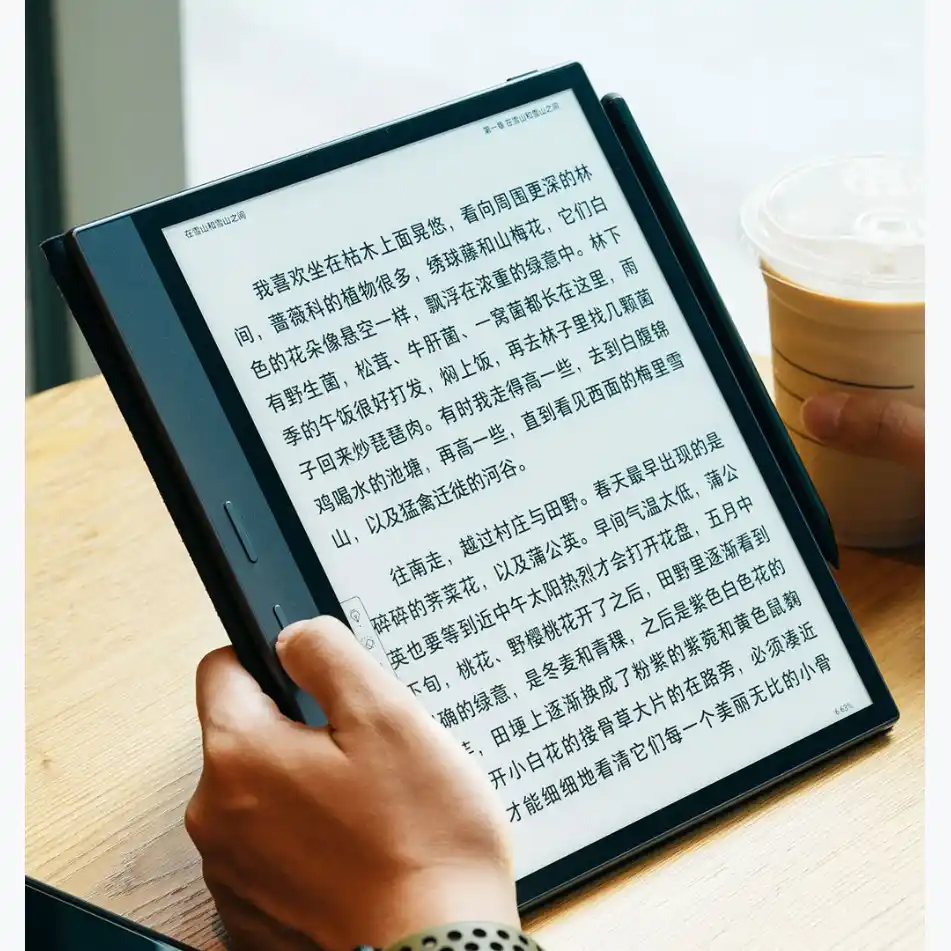 第一章 在雪山和雪山之间
在雪山和雪山之间
我喜欢坐在枯木上面晃悠,看向周围更深的林
间,蔷薇科的植物很多,绣球藤和山梅花,它们白
色的花朵像悬空一样,飘浮在浓重的绿意中。林下
有野生菌,松茸、牛肝菌、一窝菌都长在这里,雨
季的午饭很好打发,焖上饭,再去林子里找几颗菌
子回来炒琵琶肉。有时我走得高一些,去到白腹锦
鸡喝水的池塘,再高一些,直到看见西面的梅里雪
山,以及猛禽迁徙的河谷。
往南走,越过村庄与田野。春天最早出现的是
碎碎的荠菜花,以及蒲公英。早间气温太低,蒲公
英也要等到近中午太阳热烈才会打开花盘,五月中
下旬,桃花、野樱桃花开了之后,田野里逐渐看到
确的绿意,是冬麦和青稞,之后是紫色白色花的
,田埂上逐渐换成了粉紫的紫菀和黄色鼠麴
开小白花的接骨草大片的在路旁,必须凑近
才能细细地看清它们每一个美丽无比的小骨
6.63%